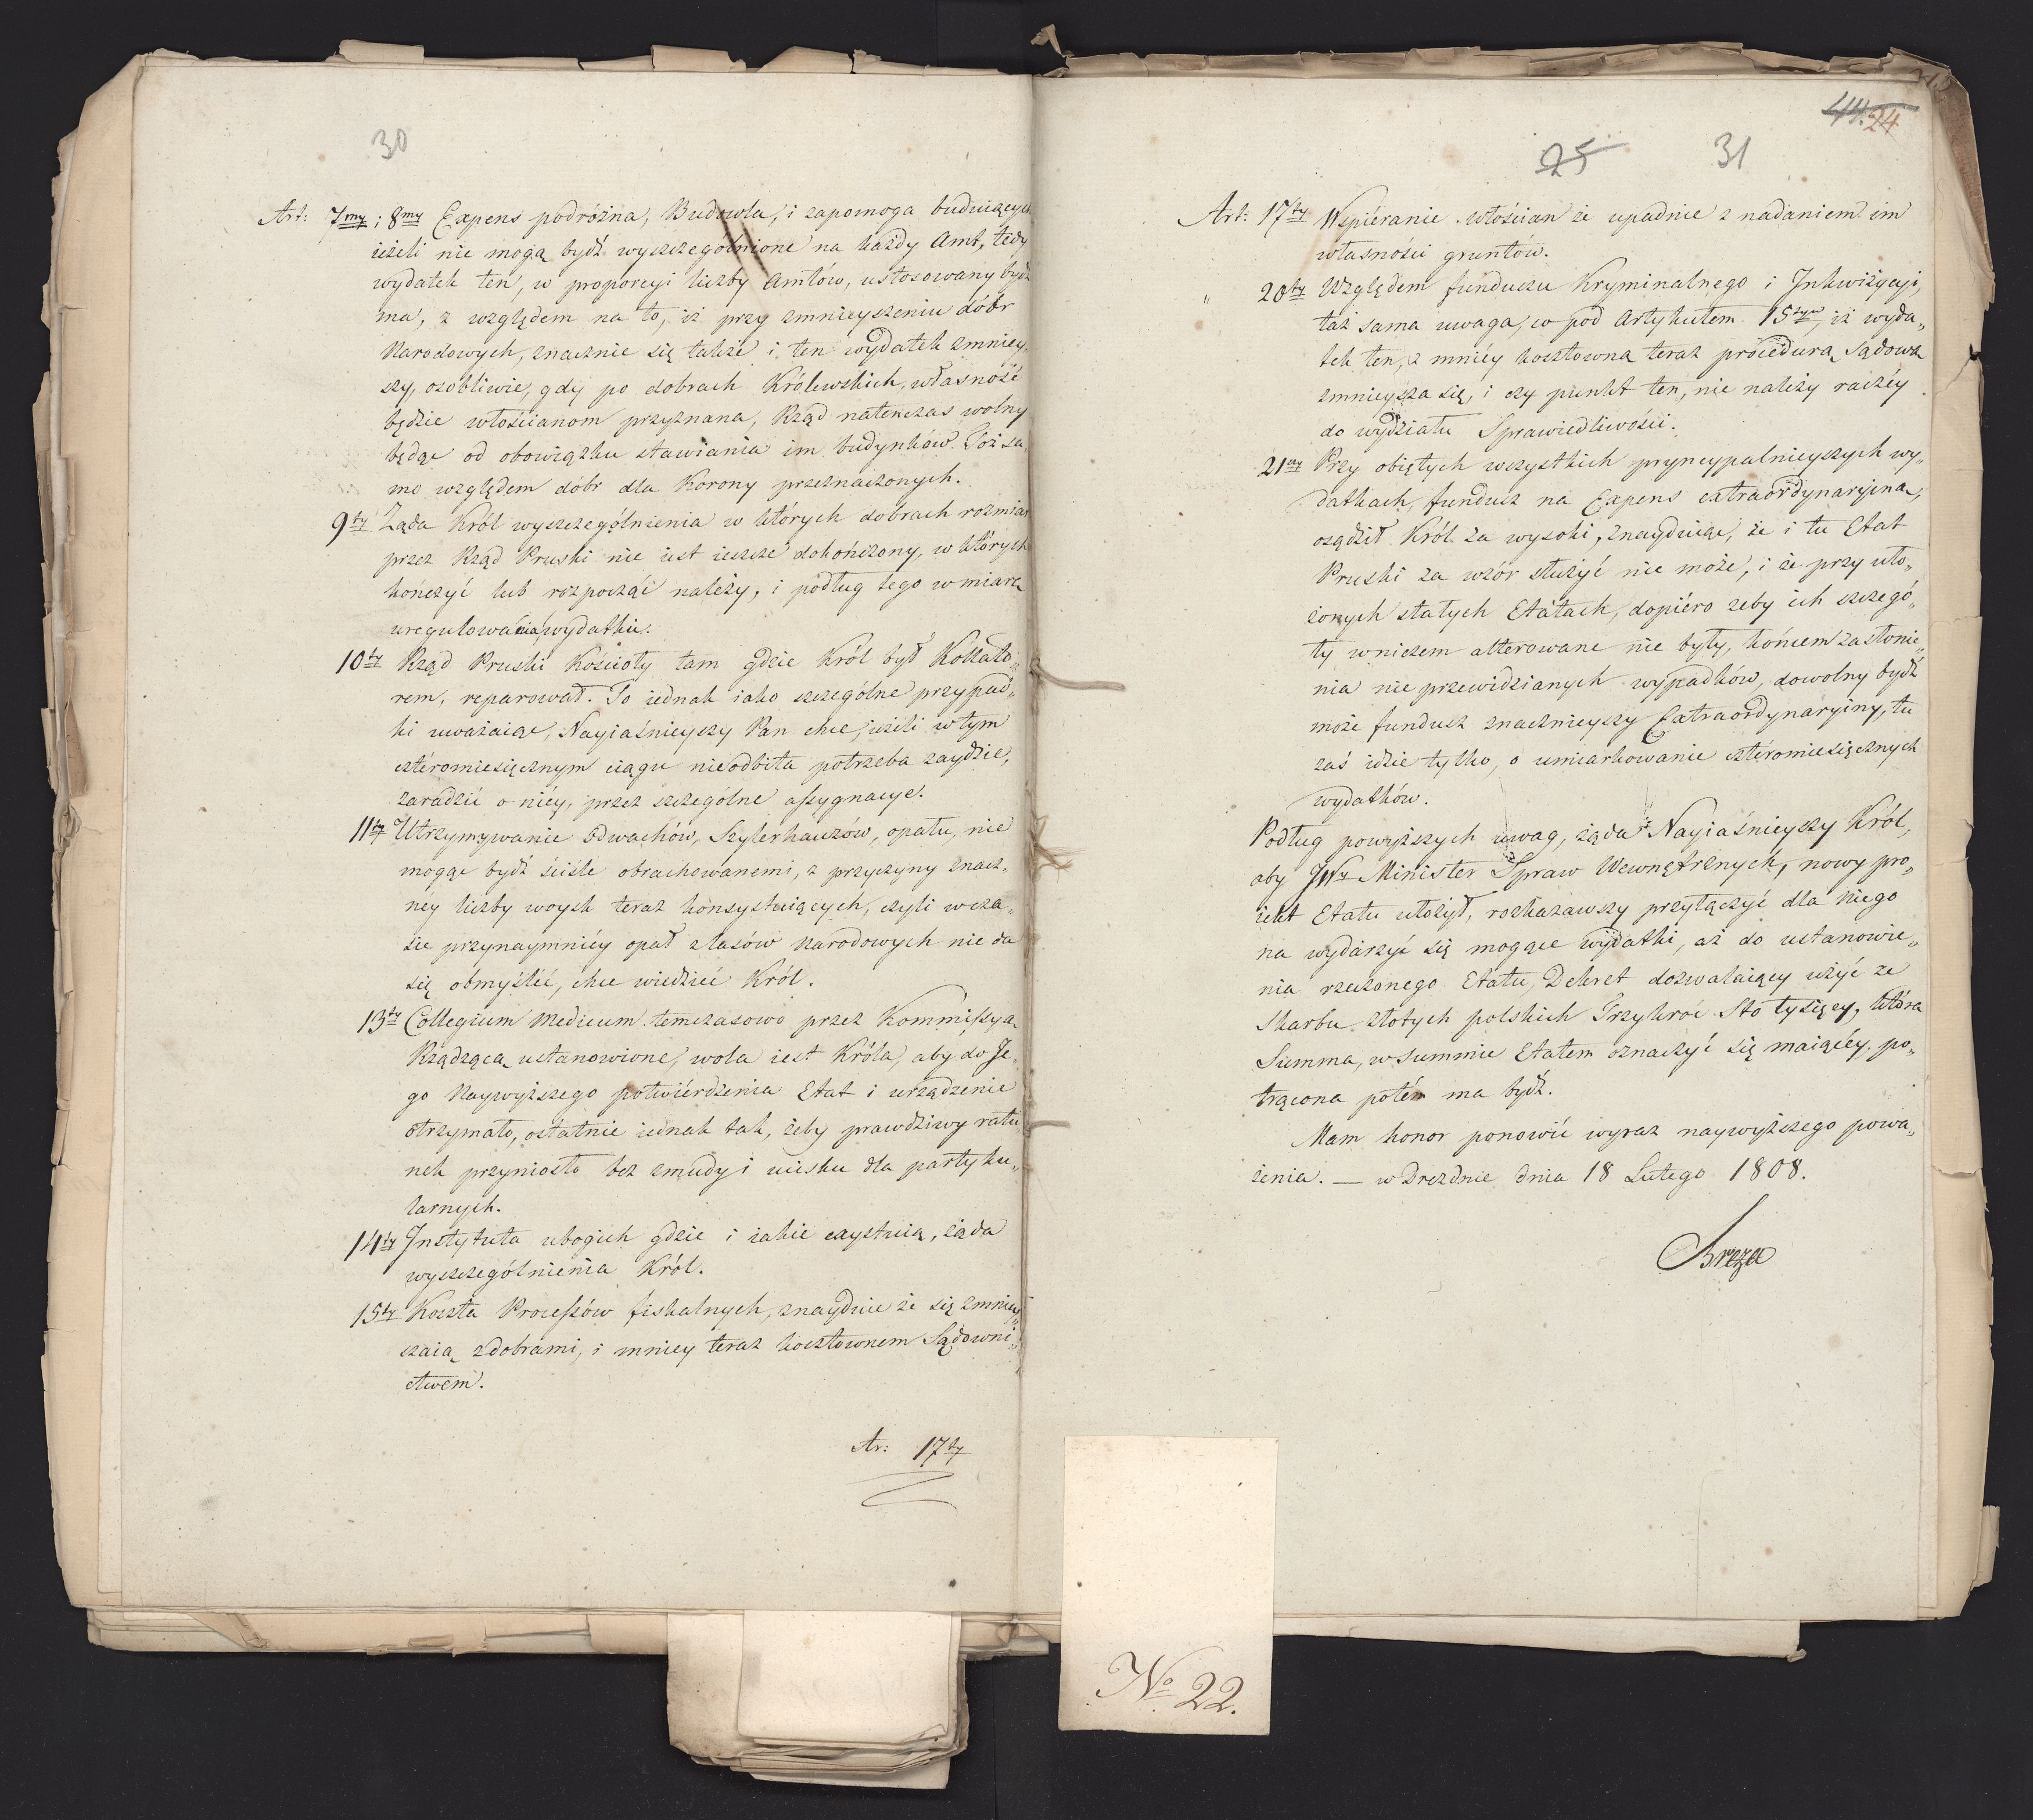 30
Art: 7my i 8my Expens podróżna, Budowla, i zapomoga buduiących
ieżeli nie mogą bydź wyszczególnione na każdy Amt, tedy
wydatek ten, w proporcyi liczby Amtów, ustosowany bydź
ma, z względem na to, iż przy zmnieyszeniu dóbr
Narodowych, znacznie się także i ten wydatek zmniey„
szy, osobliwie, gdy po dobrach Królewskich, własność
będzie włościanom przyznana, Rząd natenczas wolny
będąc od obowiązku stawiania im budynków. Toż sa„
mo względem dóbr dla Korony przeznaczonych.
9ty Żąda Król wyszczególnienia w których dobrach rozmiar
przez Rząd Pruski nie iest ieszcze dokończony, w których
kończyć lub rozpocząć należy, i podług tego w miarę
uregulowania wydatku.
10ty Rząd Pruski Kościoły tam gdzie Król był Kollato„
rem, reparował. To iednak iako szczególne przypad„
ki uważaiąc, Nayiaśnieyszy Pan chce, ieżeli w tym
cztéromiesięcznym ciągu nieodbita potrzeba zaydzie,
zaradzić o niéy, przez szczególne assygnacye.
11ty Utrzymywanie Odwachów, Szylerhauzów, opału, nie
mogąc bydź ściśle obrachowanemi, z przyczyny znacz„
néy liczby woysk teraz konsystuiących, czyli w cza„
sie przynaymniéy opał z lasów Narodowych nie da
się obmyślić, chce wiedzieć Król.
13ty Collegium Medicum temczasowo przez Kommissyą
Rządzącą ustanowione, wola iest Króla, aby do Je„
go Naywyższego potwiérdzenia Etat i urządzenie
otrzymało, ostatnie iednak tak, żeby prawdziwy ratu„
nek przyniosło bez zmudy i ucisku dla partyku„
larnych.
14ty Instytuta ubogich gdzie i iakie exystuią, żąda
wyszczególnienia Król.
15ty Koszta Processów fiskalnych, znayduie że się zmniey„
szaią z dobrami, i mniey teraz kosztownem Sądowni„
ctwem.
Ar: 17ty
44. 24
25 31
Art: 17ty Wspiéranie włościan że upadnie z nadaniem im
własności gruntów.
20ty Względem funduszu Kryminalnego i Inkwizycyi,
taż sama uwaga, co pod Artykułem 15tym, iż wyda„
tek ten, z mniéy kosztowną teraz procedurą Sądową
zmnieysza się, i czy punkt ten, nie należy raczéy
do wydziału Sprawiedliwości.
21szy Przy obiętych wszystkich pryncypalnieyszych wy„
datkach, fundusz na Expens extraordynaryiną,
osądził Król za wysoki, znayduiąc, że i tu Etat
Pruski za wzór służyć nie może, i że przy uło„
żonych stałych Etatach, dopiéro żeby ich szczegó„
ły w niczem alterowane nie były, końcem zasłonie„
nia nie przewidzianych wypadków, dowolny bydź
może fundusz znacznieyszy Extraordynaryiny, tu
zaś idzie tylko, o umiarkowanie cztéromiesięcznych
wydatków.
Podług powyższych uwag, żąda Nayiaśnieyszy Król,
aby JWy Minister Spraw Wewnętrznych, nowy pro„
iekt Etatu ułożył, rozkazawszy przyłączyć dla Niego
na wydarzyć się mogące wydatki, aż do ustanowie„
nia rzeczonego Etatu, Dekret dozwalaiący użyć ze
Skarbu złotych polskich Trzykroć Sto tysięcy, która
Summa, w Summie Etatem oznaczyć się maiącéy, po„
trącona potém ma bydź.
Mam honor ponowić wyraz naywyższego powa„
żenia. — w Dreznie dnia 18 Lutego 1808.
Breza
No 22.